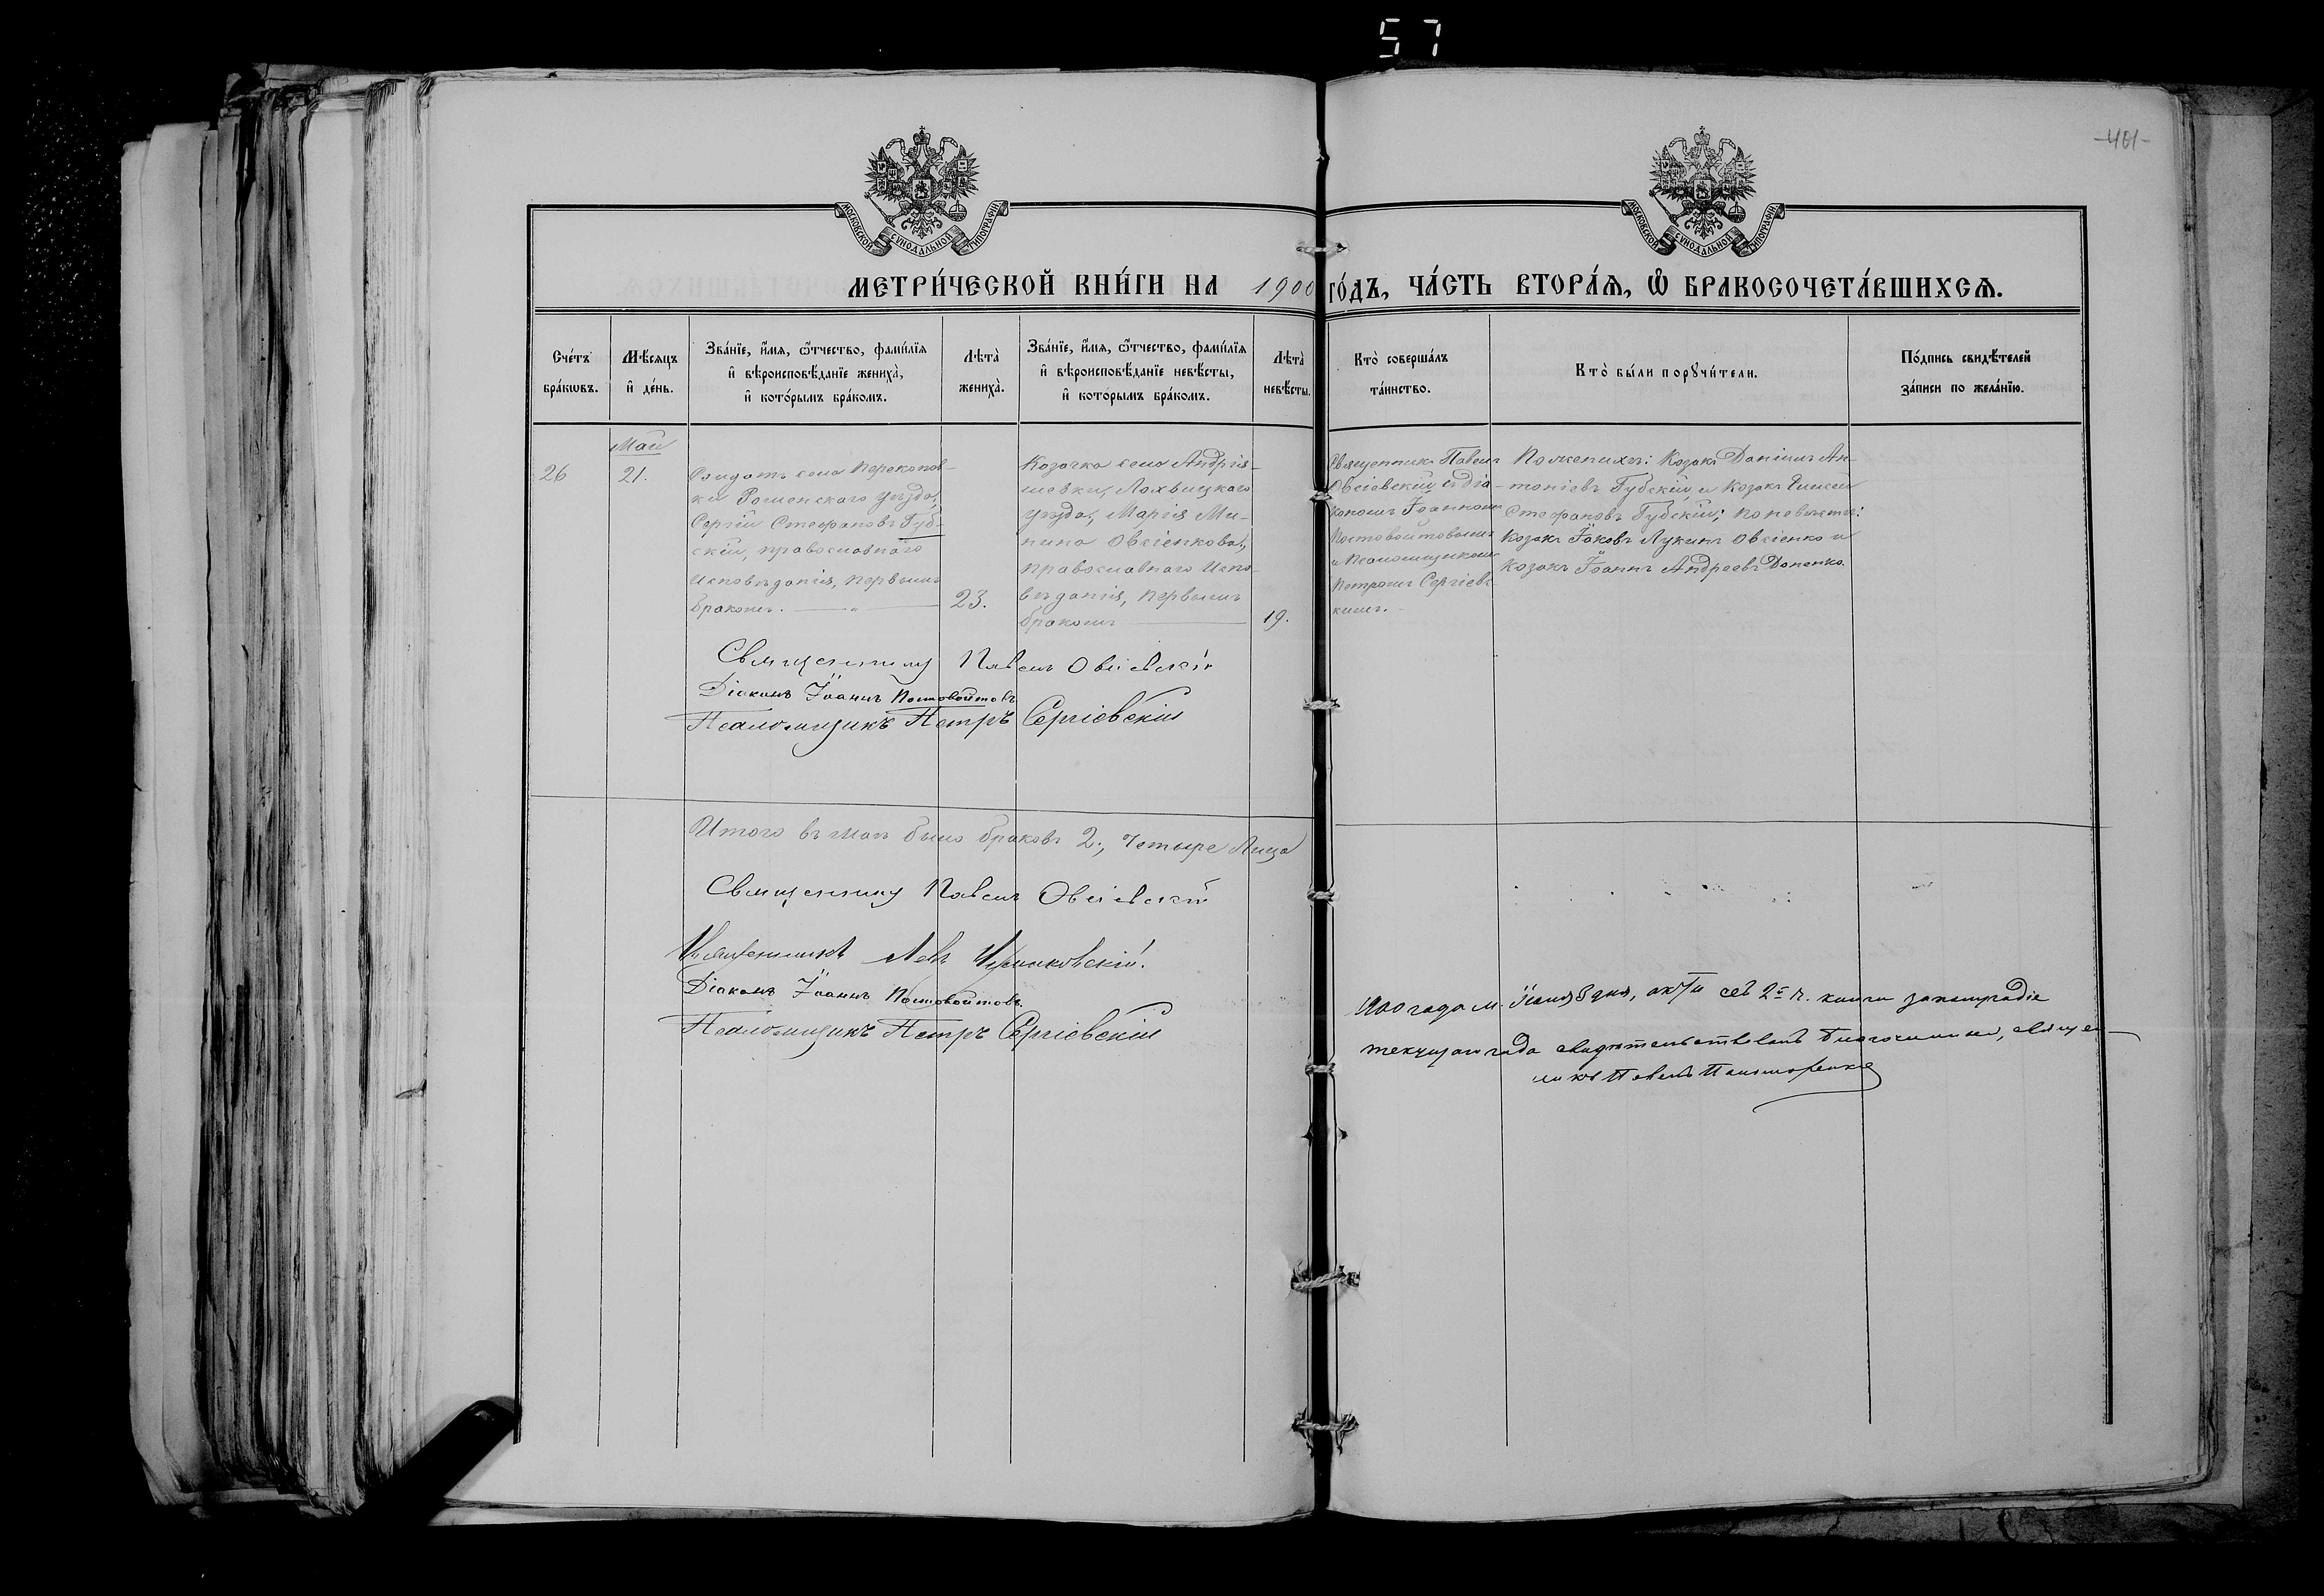 57
-401-
МОСКОВСКОЙ СУНОДАЛЬНОЙ ТИПОГРАФІИ
МОСКОВСКОЙ СУНОДАЛЬНОЙ ТИПОГРАФІИ
МЕТРИ́ЧЕСКОЙ КНИ́ГИ НА 1900 ГО́ДЪ, ЧА́СТЬ ВТОРА́Ѧ, Ѽ БРАКОСОЧЕТА́ВШИХСѦ.
Сче́тъ
бра́кѡвъ.
Мѣ́сяцъ
и҆ де́нь.
Зва́нїе, и҆́мѧ, ѻ҆́тчество, фами́лїѧ
и҆ вѣроисповѣ́данїе жениха̀,
и҆ кото́рымъ бра́комъ.
Лѣта̀
жениха̀.
Зва́нїе, и҆́мѧ, ѻ҆́тчество, фами́лїѧ
и҆ вѣроисповѣ́данїе невѣ́сты,
и҆ кото́рымъ бра́комъ.
Лѣта̀
невѣ́сты.
Кто̀ соверша́лъ
та́инство.
Кто̀ бы́ли порꙋчи́тели.
По́дпись свидѣ́телей
за́писи по жела́нїю.
26
Май
21.
Солдатъ села Перекопов-
ки Роменскаго уѣзда,
Сергій Стефановъ Губ-
скій, православнаго
исповѣданія, первымъ
бракомъ.
23.
Козачка села Андрія-
шевки, Лохвицкаго
уѣзда, Марія Ми-
нина Овсіенкова,
православнаго испо-
вѣданія, первымъ
бракомъ
19.
Священникъ Павелъ
Овсіевскій съ діа-
кономъ Іоанномъ
Постовойтовымъ
и Псаломщикомъ
Петромъ Сергіевс-
кимъ.
По женихѣ: Козакъ Даніилъ Ан-
тоніевъ Губскій и Козакъ
Стефановъ Губскій; по невѣстѣ:
Козакъ Іаковъ Лукинъ Овсіенко и
козакъ Іоаннъ Андреевъ Доненко.
Священникъ Павелъ Овсіевскій
Діаконъ Іоаннъ Постовойтовъ
Псаломщикъ Петръ Сергіевскій
Итого въ маѣ было браковъ 2; четыре лица
Священникъ Павелъ Овсіевскій
Священникъ Левъ
Діаконъ Іоаннъ Постовойтовъ
Псаломщикъ Петръ Сергіевскій
1900 года м. Іюня 5 дня, акты сей 2й ч. книги за
текущаго года свидѣтельствовалъ Благочинный, священ-
никъ Павелъ